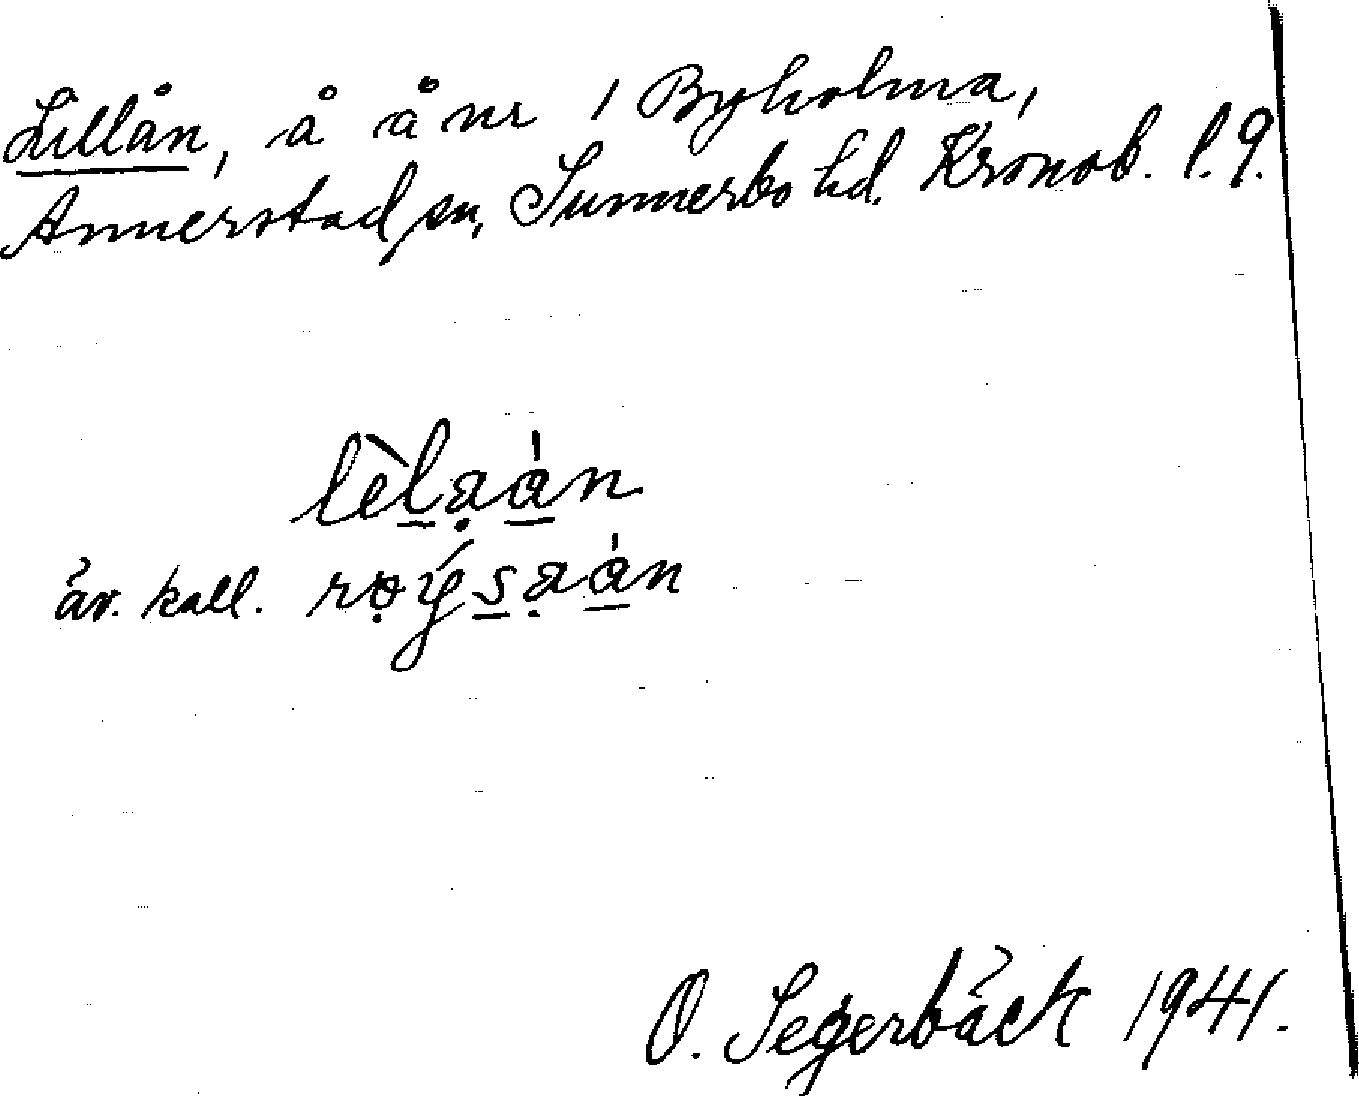 Lillån, å å nr 1 Byholma,
Annerstad sn, Sunnerbo hd. Kronob. l. 9.
lèlaån
äv. kall. røýsaån
O. Segerbäck 1941.